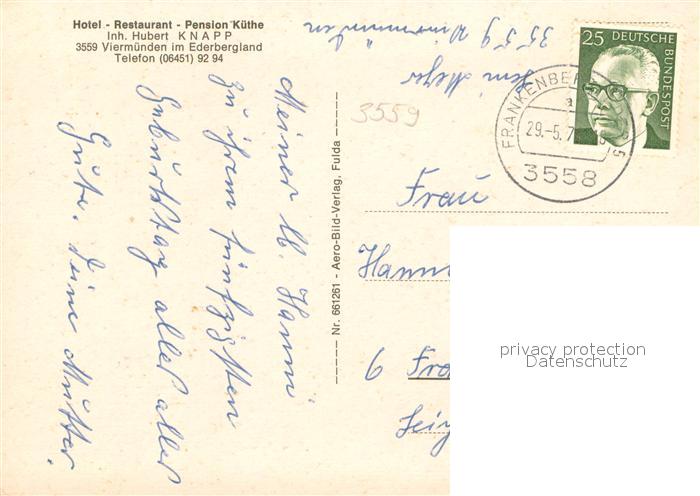 Hotel - Restaurant - Pension Küthe
Inh. Hubert KNAPP
3559 Viermünden im Ederbergland
Telefon (06451) 92 94
Meiner lb. Hanni
zu ihrem fünfzigsten
Geburtstag alles alles
Gute. Deine Mutter.
Nr. 661261 - Aero-Bild-Verlag, Fulda
3559 Viermünden
3559
25 DEUTSCHE BUNDESPOST
FRANKENBERG
a
29.-5.7
3558
Frau
Hann
6 Fra
privacy protection
Datenschutz